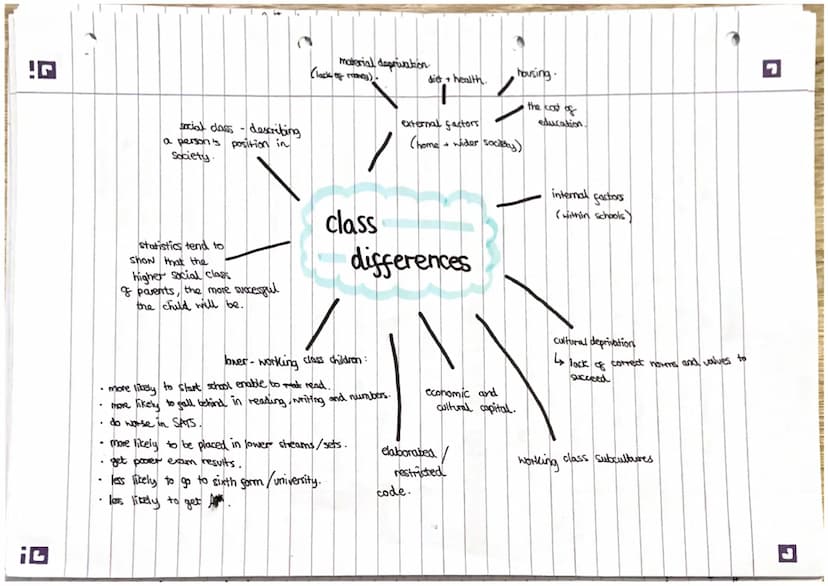 class
differences
material deprivation
(lack of money).
diet + health.
housing.
the cost of
education.
external factors
(home + wider society)
internal factors
(within schools)
cultural deprivation
↳ lack of correct norms and values to
succeed
working class subcultures
economic and
cultural capital.
elaborated /
restricted
code.
lower-working class children:
• more likely to start school enable to read.
• more likely to fall behind in reading, writing and numbers.
• do worse in SATS.
• more likely to be placed in lower streams/sets.
• get poorer exam results.
• less likely to go to sixth form/university.
• less likely to get
statistics tend to
show that the
higher social class
of parents, the more successful
the child will be.
social class - describing
a person's position in
society.